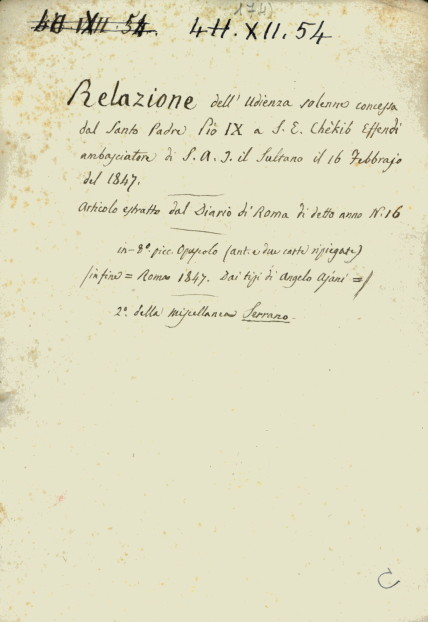 174)
44. XII. 54
Relazione dell' Udienza solenne concessa
dal Santo Padre Pio IX a S. E. Chèkib Effendi
ambasciatore di S. A. I. il Sultano il 16 Febbrajo
del 1847.
Articolo estratto dal Diario di Roma di detto anno N. 16
in-8.° picc. Opuscolo (ant. e due carte ripiegate)
/in fine = Roma 1847. Dai tipi di Angelo Ajani =/
2.ª della Miscellanea Serrano.
C